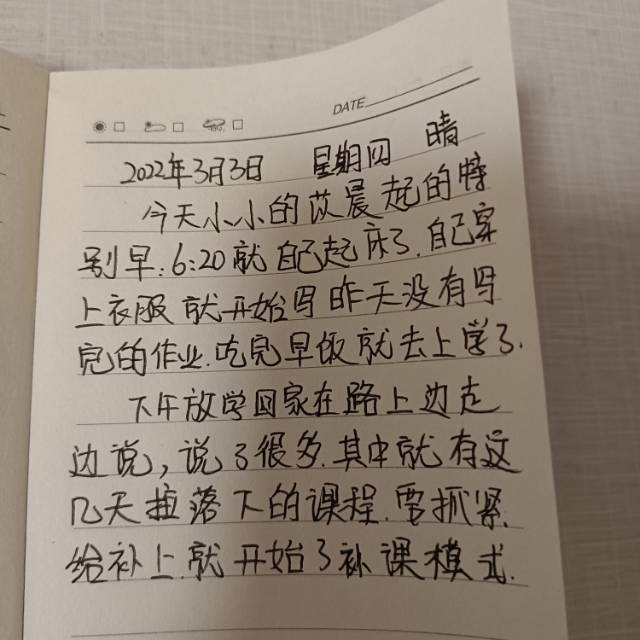 DATE
2022年3月3日 星期四 晴
今天小小的苡晨起的特
别早.6:20就自己起床了.自己穿
上衣服就开始写昨天没有写
完的作业.吃完早饭就去上学了.
下午放学回家在路上边走
边说,说了很多.其中就有这
几天掉落下的课程.要抓紧
给补上.就开始了补课模式.